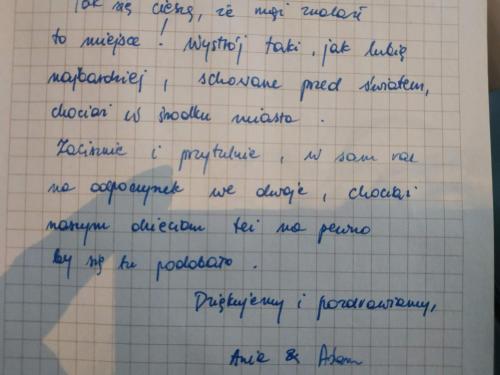 Jak się cieszę, że mąż znalazł
to miejsce! Wystrój taki, jak lubię
najbardziej, schowane przed światem,
chociaż w środku miasta.
Zacisznie i przytulnie, w sam raz
na odpoczynek we dwoje, chociaż
naszym dzieciom też na pewno
by się tu podobało.
Dziękujemy i pozdrawiamy,
Ania & Adam